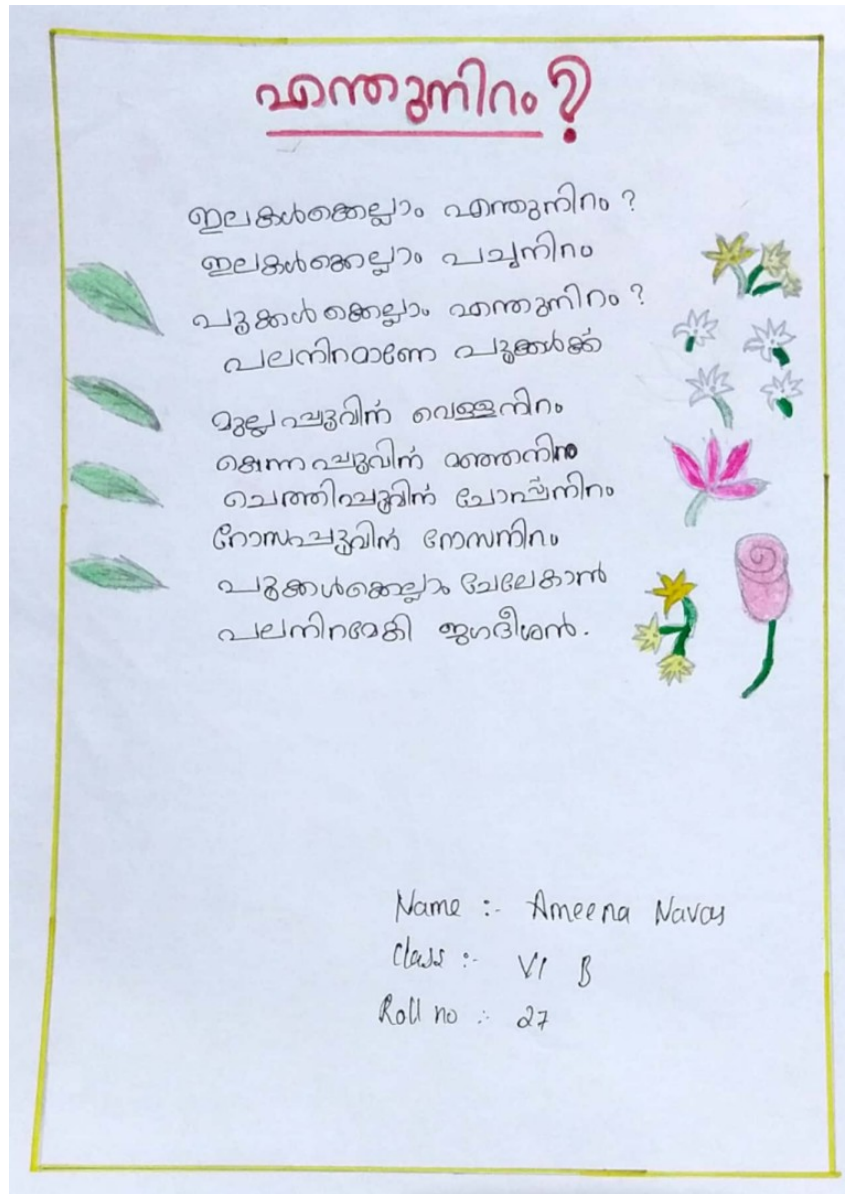 എന്തുനിറം?
ഇലകൾക്കെല്ലാം എന്തുനിറം ?
ഇലകൾക്കെല്ലാം പച്ചനിറം
പൂക്കൾക്കെല്ലാം എന്തുനിറം ?
പലനിറമാണേ പൂക്കൾക്ക്
മുല്ലപ്പൂവിന് വെള്ളനിറം
കൊന്നപ്പൂവിന് മഞ്ഞനിറം
ചെത്തിപ്പൂവിന് ചോപ്പ്നിറം
റോസപ്പൂവിന് റോസനിറം
പൂക്കൾക്കെല്ലാം ചേലേകാൻ
പലനിറമേകി ജഗദീശൻ.
Name :- Ameena Navas
Class :- VI B
Roll no :- 27